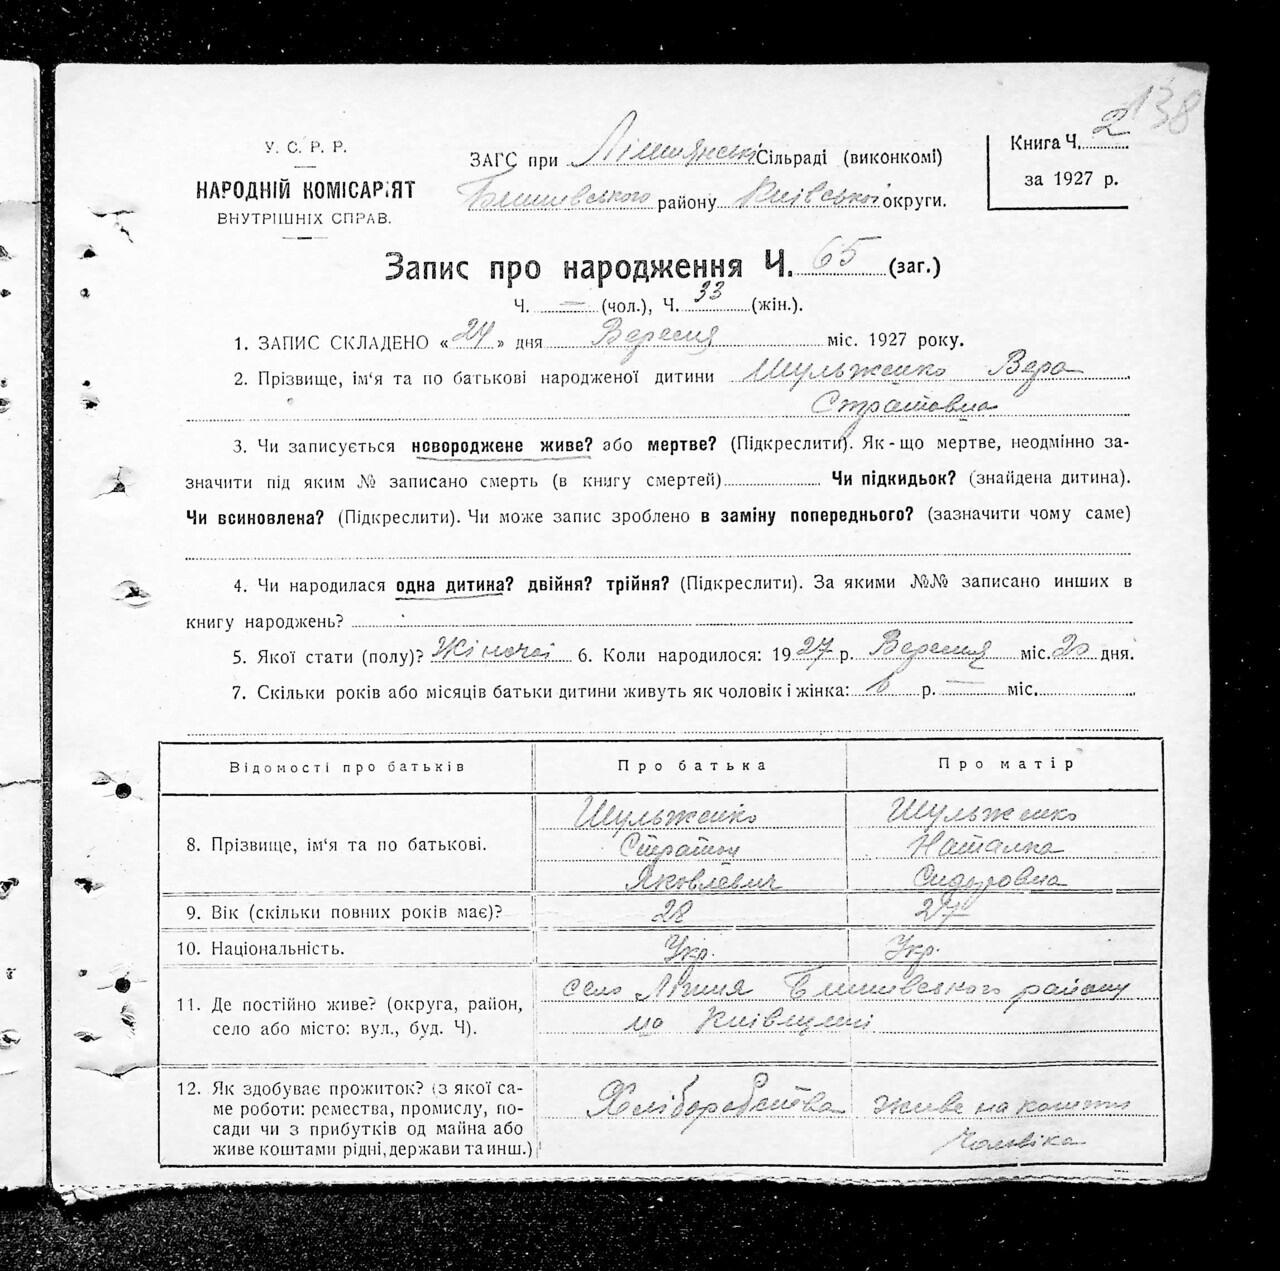 138
У. С. Р. Р.
НАРОДНІЙ КОМІСАРІЯТ
ВНУТРІШНІХ СПРАВ.
ЗАГС при Сільраді (виконкомі)
району Київської округи.
Книга Ч. 2
за 1927 р.
Запис про народження Ч. 65 (заг.)
Ч. — (чол.), Ч. 33 (жін.).
1. ЗАПИС СКЛАДЕНО « 24 » дня Вересня міс. 1927 року.
2. Прізвище, ім'я та по батькові народженої дитини Шульженко Вера
3. Чи записується новороджене живе? або мертве? (Підкреслити). Як-що мертве, неодмінно за-
значити під яким № записано смерть (в книгу смертей) Чи підкидьок? (знайдена дитина).
Чи всиновлена? (Підкреслити). Чи може запис зроблено в заміну попереднього? (зазначити чому саме)
4. Чи народилася одна дитина? двійня? трійня? (Підкреслити). За якими №№ записано инших в
книгу народжень?
5. Якої стати (полу)? Жіночої 6. Коли народилося: 1927 р. Вересня міс. 20 дня.
7. Скільки років або місяців батьки дитини живуть як чоловік і жінка: 6 р. — міс.
Відомості про батьків Про батька Про матір
8. Прізвище, ім'я та по батькові. Шульженко Шульженко
Стратон Наталка
Яковлевич Сидоровна
9. Вік (скільки повних років має)? 28 27
10. Національність. Укр. Укр.
11. Де постійно живе? (округа, район,
село або місто: вул., буд. Ч).
село району
на Київщені
12. Як здобуває прожиток? (з якої са-
ме роботи: ремества, промислу, по-
сади чи з прибутків од майна або
живе коштами рідні, держави та инш.)
Хліборобства живе на кошти
Чоловіка